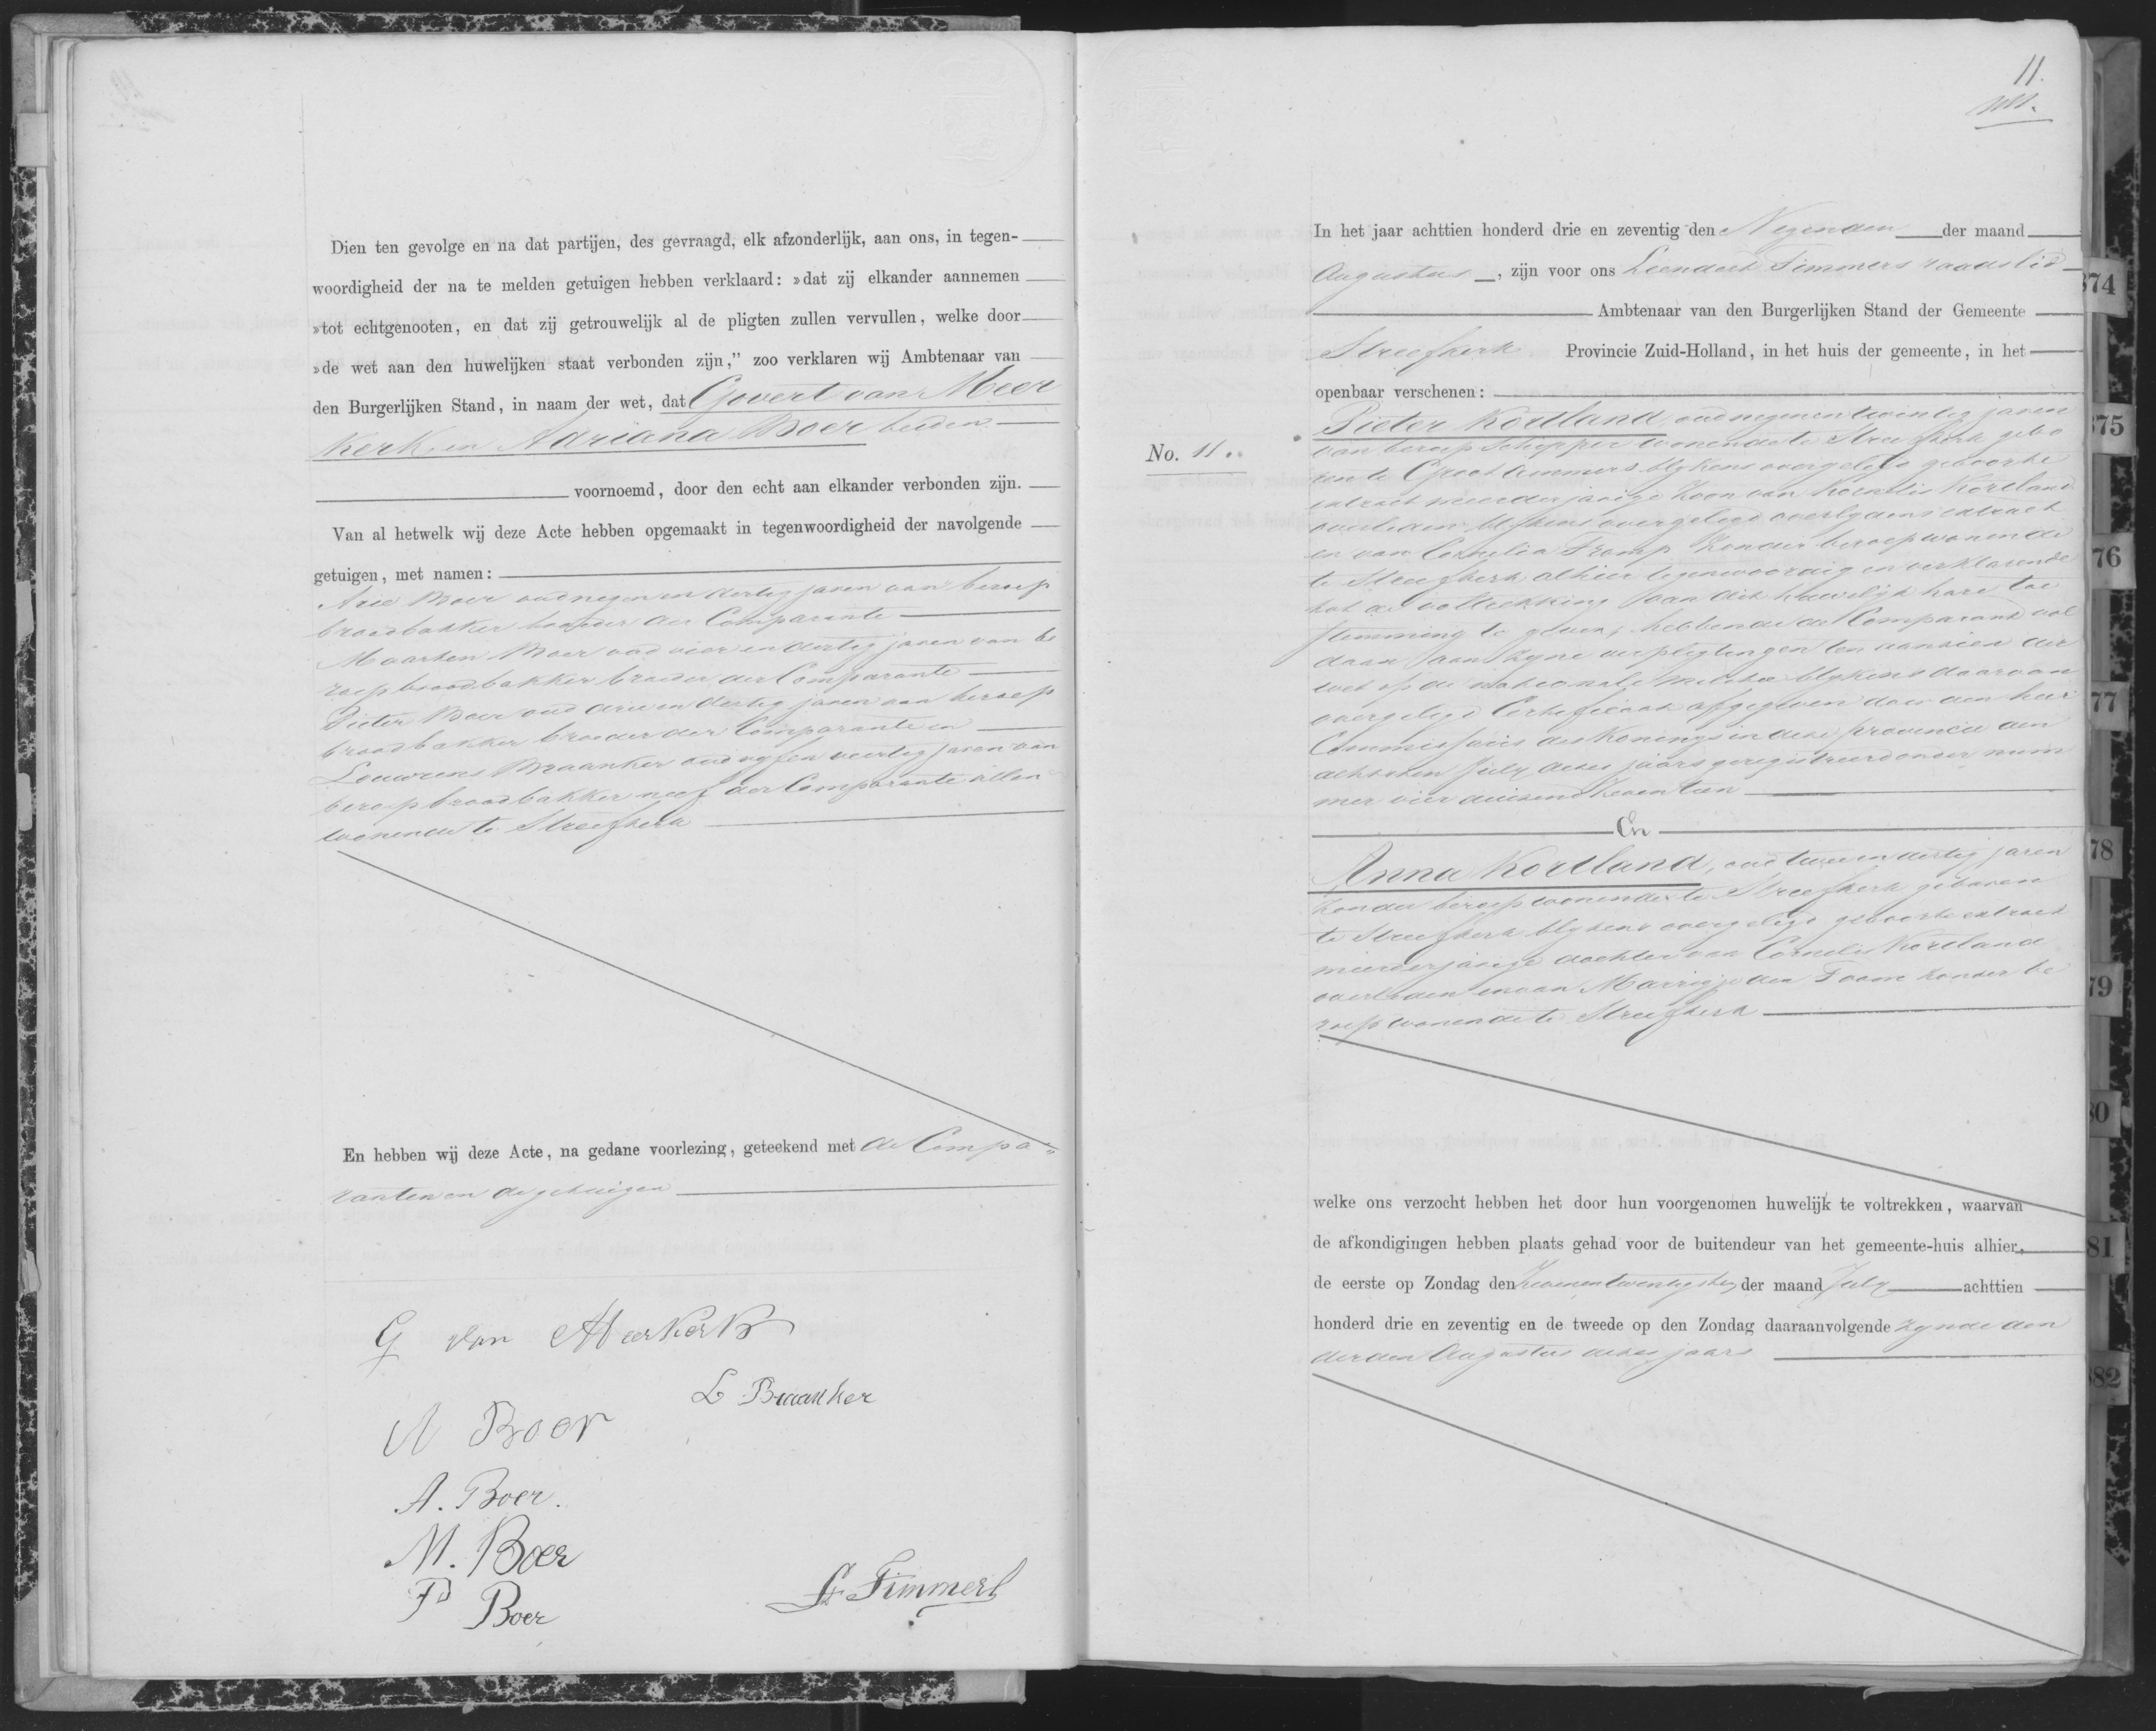 Dien ten gevolge en na dat partijen, des gevraagd, elk afzonderlijk, aan ons, in tegen-
woordigheid der na te melden getuigen hebben verklaard: »dat zij elkander aannemen
»tot echtgenooten, en dat zij getrouwelijk al de pligten zullen vervullen, welke door
»de wet aan den huwelijken staat verbonden zijn,” zoo verklaren wij Ambtenaar van
den Burgerlijken Stand, in naam der wet, dat Govert van Meer
kerk en Adriana Boer beiden
voornoemd, door den echt aan elkander verbonden zijn.
Van al hetwelk wij deze Acte hebben opgemaakt in tegenwoordigheid der navolgende
getuigen, met namen:
Arie Boer oud negen en dertig jaren van beroep
broodbakker broeder der Comparante
Maarten Boer oud vier en dertig jaren van be
roep broodbakker broeder der Comparante
Pieter Boer oud drie en dertig jaren van beroep
broodbakker broeder der Comparante en
Lourens Braanker oud vyf en veertig jaren van
beroep broodbakker neef der Comparante allen
wonende te Streefkerk
En hebben wij deze Acte, na gedane voorlezing, geteekend met de Compa
ranten en de getuigen
G van Meerkerk
L Braanker
A Boer
A. Boer.
M. Boer
P Boer
L. Timmers
11.
In het jaar achttien honderd drie en zeventig den Negenden der maand
Augustus, zijn voor ons Leendert Timmers raadslid
Ambtenaar van den Burgerlijken Stand der Gemeente
Streefkerk Provincie Zuid-Holland, in het huis der gemeente, in het
openbaar verschenen:
No. 11.
Pieter Kortland oud negen en twintig jaren
van beroep Schipper wonende te Streefkerk gebo
ren te Groot Ammers blykens overgelegd geboorte
extract meerderjarige Zoon van Kornelis Kortland
overleden blykens overgelegd overlydens extract
en van Cornelia Tromp Zonder beroep wonende
te Streefkerk alhier tegenwoordig en verklarende
tot de voltrekking van dit huwelijk hare toe
stemming te geven, hebbende de Comparant vol
daan aan Zyne verpligtingen ten aanzien der
wet op de nationale Militie blykens daarvan
overgelegd Certificaat afgegeven door den heer
Commissaris des Konings in deze provincie den
achtsten July dezes jaars geregistreerd onder num
mer vier duizend Zeventien
En
Anna Kortland, oud twee en dertig jaren
Zonder beroep wonende te Streefkerk geboren
te Streefkerk blykens overgelegd geboorte extract
meerderjarige dochter van Cornelis Kortland
overleden en van Marrigje den Toom Zonder be
roep wonende te Streefkerk
welke ons verzocht hebben het door hun voorgenomen huwelijk te voltrekken, waarvan
de afkondigingen hebben plaats gehad voor de buitendeur van het gemeente-huis alhier,
de eerste op Zondag den Zevenentwintigsten der maand July achttien
honderd drie en zeventig en de tweede op den Zondag daaraanvolgende zynde den
derden Augustus dezes jaars
874
875
76
77
78
79
80
81
882